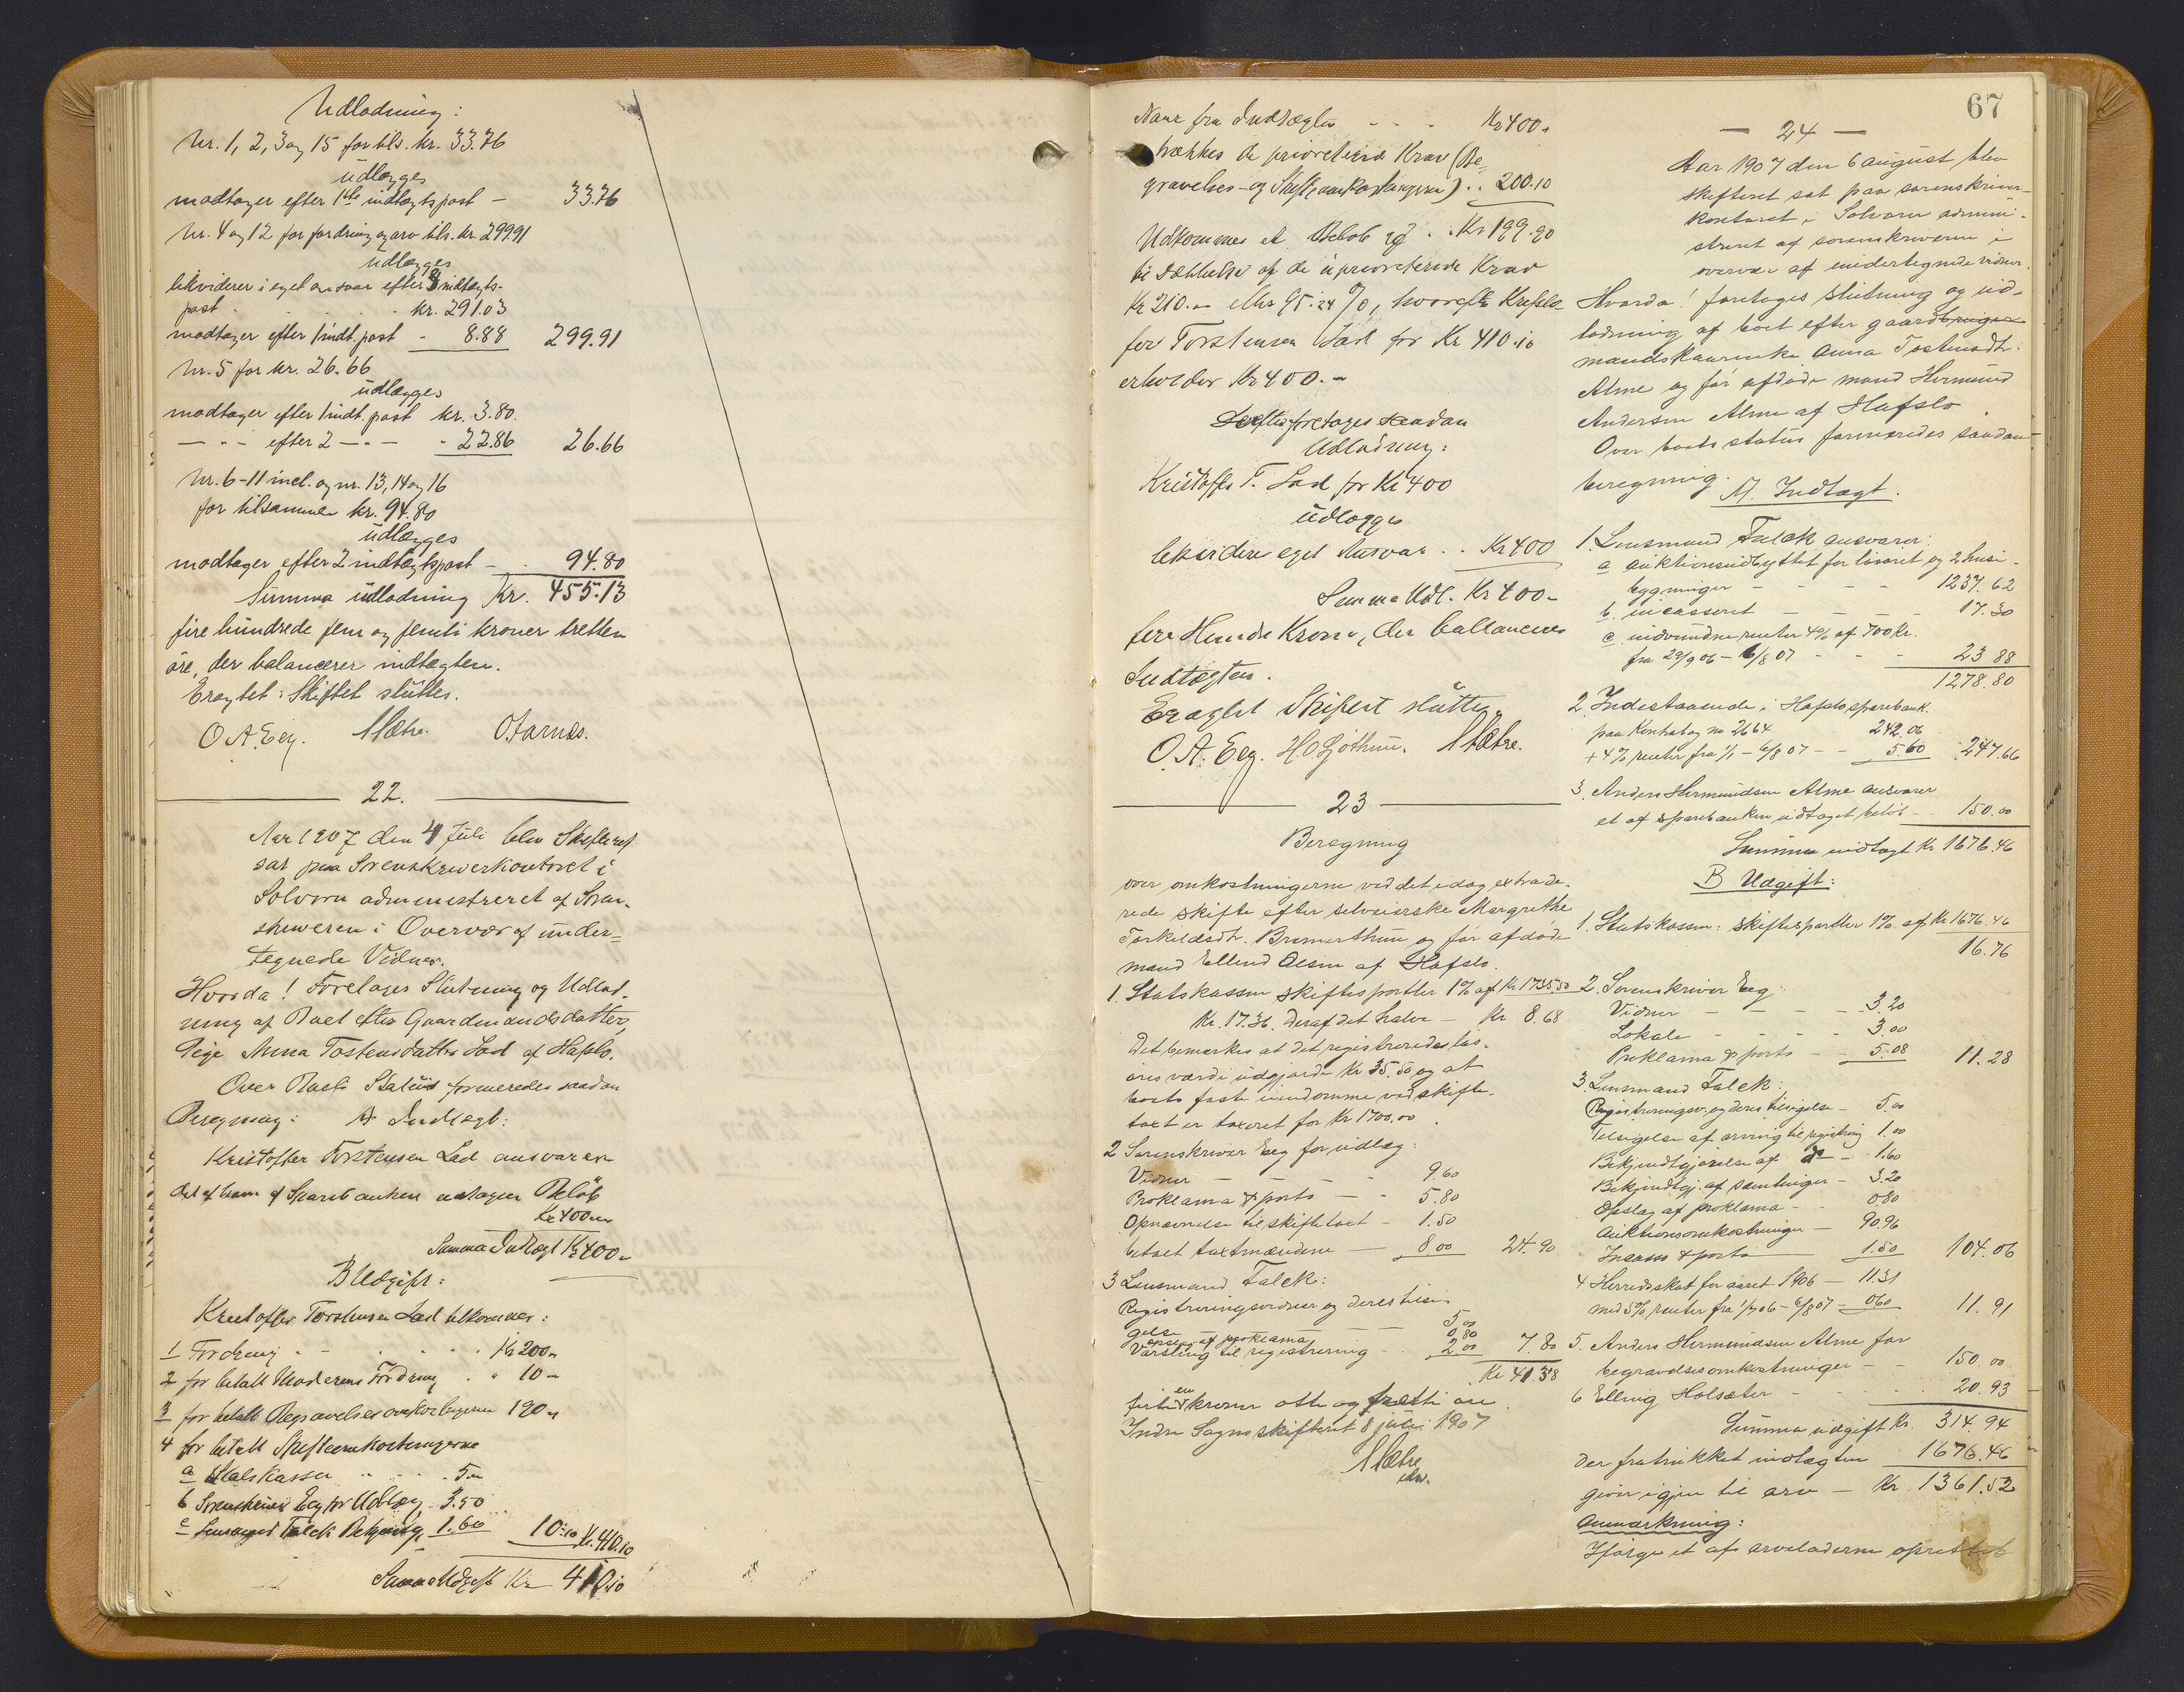 Udlodning:
Nr. 1, 2, 3 og 15 for tils. kr. 33.76
udlægges
modtager efter 1ste indtægtspost - 33.76
Nr. 4 og 12 for fordring og arv tils. kr. 299.91
udlægges
likviderer i eget ansvar efter 3 indtægts-
post . . . . . kr. 291.03
modtager efter 1 indt. post - 8.88 299.91
Nr. 5 for kr. 26.66
udlægges
modtager efter 1 indt. post kr. 3.80.
— " — efter 2 — " — " 22.86 26.66
Nr. 6-11 incl. og nr. 13, 14 og 16
for tilsammen kr. 94.80
udlægges
modtager efter 2 indtægtspost - . 94.80
Summa udlodning Kr. 455.13
fire hundrede fem og femti kroner tretten
øre, der balancerer indtægten.
Eragtet: Skiftet sluttes.
O A. Eeg. Sætre. O. Aarnæs.
22.
Aar 1907 den 4 Juli blev Skifteret
sat paa Sorenskriverkontoret i
Solvorn administreret af Soren-
skriveren i Overvær af under-
tegnede Vidner.
Hvorda! Foretages Slutning og Udlod-
ning af Boet efter Gaardmandsdatter,
Pige Anna Tostensdatter Lad af Hafslo.
Over Boets Status formeredes saadan
Beregning: A Indtægt:
Kristoffer Torstensen Lad ansvarer
det af ham af Sparebanken udtagne Beløb
Kr 400 "
Summa Indtægt Kr 400 "
B Udgift:
Kristoffer Torstensen Lad tilkommer:
1 Fordring - . . . . Kr 200 "
2 for betalt Moderens Fordring . " 10 "
3 for betalt Begravelsesomkostningerne 190 "
4 for betalt Skifteomkostningerne
a Statskassen . . . . 5 "
b Sorenskriver Eeg for Udlæg 3.50
c Lensmand Falck Betjening. 1.60 10.10 Kr. 410.10
Summa Udgift Kr 410.10
67
Naar fra Indtægten - - . Kr 400 "
trækkes de prioriterede Krav (Be-
gravelses- og Skifteomkostningerne) . . 200.10
Udkommer et Beløb af . . Kr 199.90
til Dækkelse af de uprioriterede Krav
Kr 210.00 eller 95.24 %, hvorefter Kristof-
fer Torstensen Lad for Kr 410.10
erholder Kr 400. -
Derefter foretages saadan
Udlodning:
Kristoffer T. Lad for Kr 400
udlægges
likvidere eget Ansvar . . Kr 400
Summa Udl. Kr 400 -
fire Hundre Kroner, der ballancerer
Indtægten.
Eragtet Skiftet sluttes
O. A. Eeg. H. O. Ljøthun. Sætre.
23
Beregning
over omkostningerne ved det idag extrade-
rede skifte efter selveierske Margrethe
Torkildsdtr. Bremerthun og før afdøde
mand Ellend Olsen af Hafslo.
1. Statskassen skiftesportler 1% af Kr 1735.50
Kr. 17.36. Deraf det halve - Kr 8.68
Det bemærkes at det registreredes løs-
øres værdi udgjorde Kr 35.50 og at
boets faste eiendomme ved skifte-
taxt er taxeret for Kr 1700.00
2 Sorenskriver Eeg for udlæg:
Vidner - - - - 9.60
Proklama & porto - - 5.80
Opnævnelse til skiftetaxt - 1.50
betalt taxtmændene - 8.00 24.90
3 Lensmand Falck:
Registreringsvidner og deres tilsi-
gelse - - - 5.00
opslag af proklama 0.80
Varsling til registrering - 2.00 7.80
Kr 41.38
firti en kroner otte og tretti øre
Indre Sogns skifteret 8 juli 1907
Sætre
edsv.
— 24 —
Aar 1907 den 6 august blev
skifteret sat paa sorenskriver-
kontoret i Solvorn admini-
streret af sorenskriveren i
overvær af undertegnede vidner.
Hvorda! foretages slutning og ud-
lodning af boet efter gaardbruger
mandskaarenke Anna Tostensdtr.
Alme og før afdøde mand Hermund
Andersen Alme af Hafslo.
Over boets status formeredes saadan
beregning.
A. Indtægt.
1. Lensmand Falck ansvarer:
a auktionsudbyttet for løsøret og 2 husi-
bygninger - - - - 1237.62
b. incasseret - - - - 17.30
c indvundne renter 4% af 700 kr.
fra 29/9 06 - 6/8 07 - - - 23 88
1278.80
2 Indestaaende i Hafslo sparebank
paa Kontrabog no 2664 242.06
+ 4% renter fra 1/1 - 6/8 07 - - 5.60 247.66
3. Anders Hermundsen Alme ansvarer
et af sparebanken udtaget beløb - - 150.00
Summa indtægt Kr 1676.46
B Udgift:
1. Statskassen: Skiftesportler 1% af Kr 1676.46
16.76
2. Sorenskriver Eeg:
Vidner - - - - 3.20
Lokale - - - - 3.00
Proklama & porto - - 5.08 11.28
3 Lensmand Falck:
Registreringsv. og deres tilsigelse - 5.00
Tilsigelse af arving til registrering 1.00
Bekjendtgjørelse af do - 1.60
Bekjendtgj. af samlinger - 3.20
Opslag af proklama - - 0.80
Auktionsomkostninger - 90.96
Incasso & porto 1.50 104.06
4 Herredsskat for aaret 1906 - 11.31
med 5% renter fra 1/7 06 - 6/8 07 - 0.60 11.91
5. Anders Hermundsen Alme for
begravelsesomkostninger - - 150.00
6 Elling Holsæter - - - . . 20.93
Summa udgift Kr. 314.94
der fratrukket indtægten 1676.46
giver igjen til arv - Kr. 1361.52
Anmærkning:
Ifølge et af arveladerne oprettet